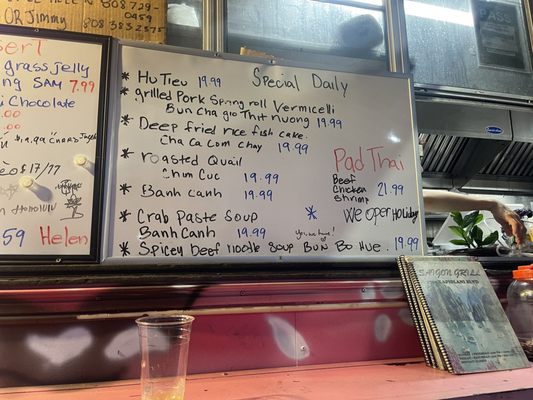 808
OR Jimmy 808 383 2755
0459
erl
grass jelly
SAM 7.99
Chocolate
$17/77
Honolulu
59
Helen
Special Daily
* Hu Tieu 19.99
* grilled Pork Spring roll Vermicelli
Bun cha gio Thit nuong 19.99
* Deep fried rice fish cake.
Cha Ca Com chay 19.99
* roasted Quail
Chim Cuc 19.99
* Banh canh 19.99
* Crab Paste Soup
Banh Canh 19.99
* Spicey beef noodle soup Bun Bo Hue. 19.99
Pad Thai
Beef
Chicken 21.99
Shrimp
* We open Holidays
SAIGON GRILL
KAPIOLANI BLVD